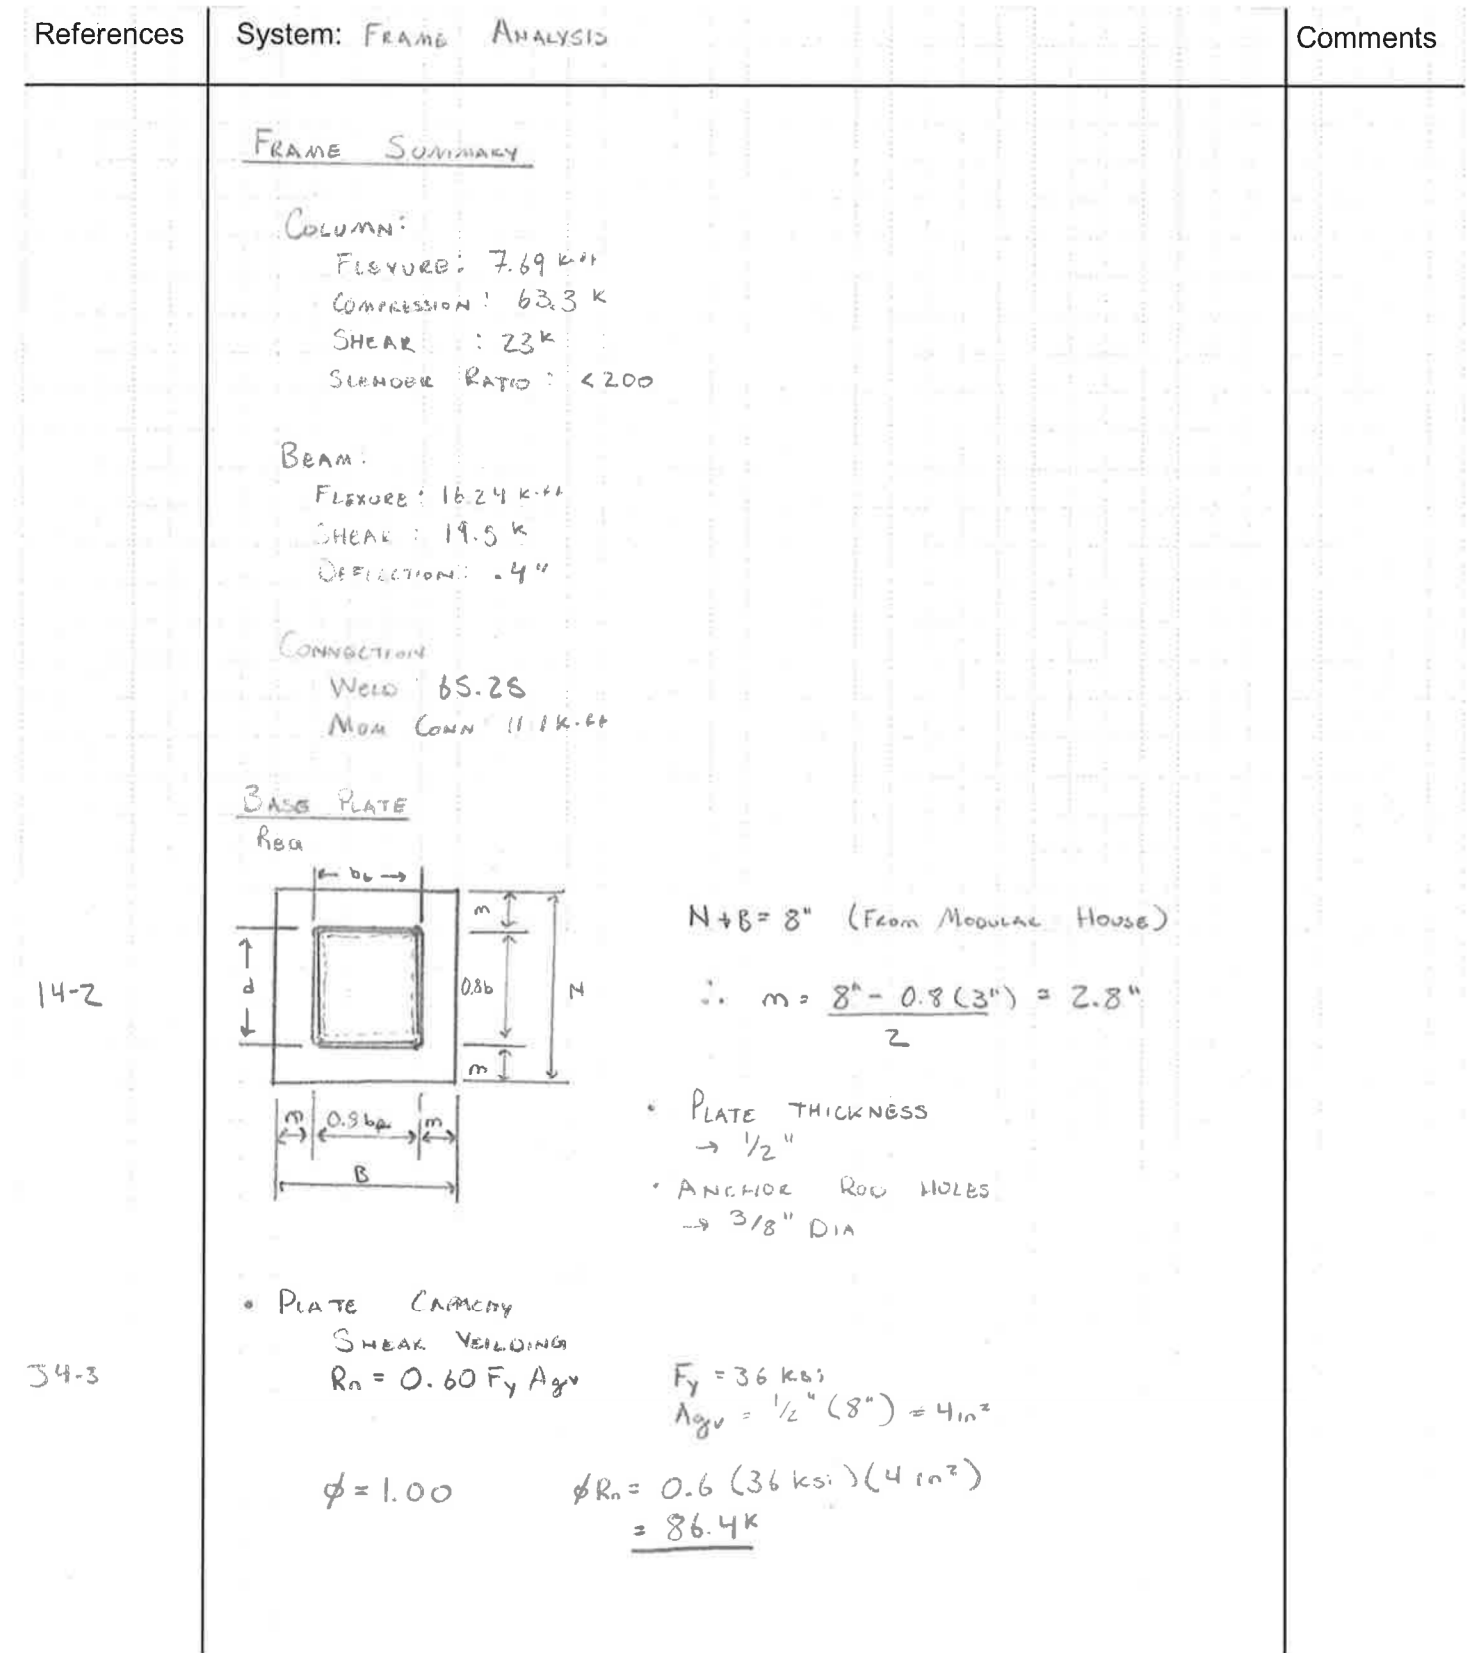 References
System: FRAME ANALYSIS
Comments
FRAME SUMMARY
COLUMN:
FLEXURE: 7.69 k-ft
COMPRESSION: 63.3 K
SHEAR : 23K
SLENDER RATIO: <200
BEAM:
FLEXURE: 16.24 k-ft
SHEAR: 19.5 K
DEFLECTION: .4"
CONNECTION
WELD 65.28
MOM CONN 11.1 K-ft
BASE PLATE
bb
m
d
0.8b
N
m
m 0.8 m
B
N + B = 8" (FROM MODULAR HOUSE)
14-2
∴ m = 8" - 0.8(3") = 2.8"
2
• PLATE THICKNESS
→ 1/2"
• ANCHOR ROD HOLES
→ 3/8" DIA
• PLATE CAPACITY
SHEAR YEILDING
J4-3
Rn = 0.60 Fy Agv Fy = 36 ksi
Agv = 1/2" (8") = 4in²
ϕ = 1.00 ϕRn = 0.6 (36 ksi)(4 in²)
= 86.4K